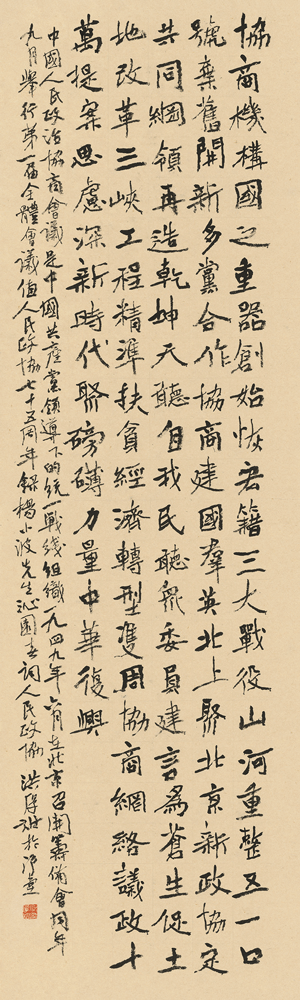 協商機構國之重器創始恢宏籍三大戰役山河重整五一口
號棄舊開新多黨合作協商建國羣英北上聚北京新政協定
共同綱領再造乾坤天聽自我民聽眾委員建言為蒼生促土
地改革三峽工程精準扶貧經濟轉型雙周協商網絡議政十
萬提案思慮深新時代聚磅礴力量中華復興
中國人民政治協商會議是中國共產黨領導下的統一戰綫組織一九四九年六月在北京召開籌備會同年
九月舉行第一届全體會議值人民政協七十五周年錄楊小波先生沁園春詞人民政協